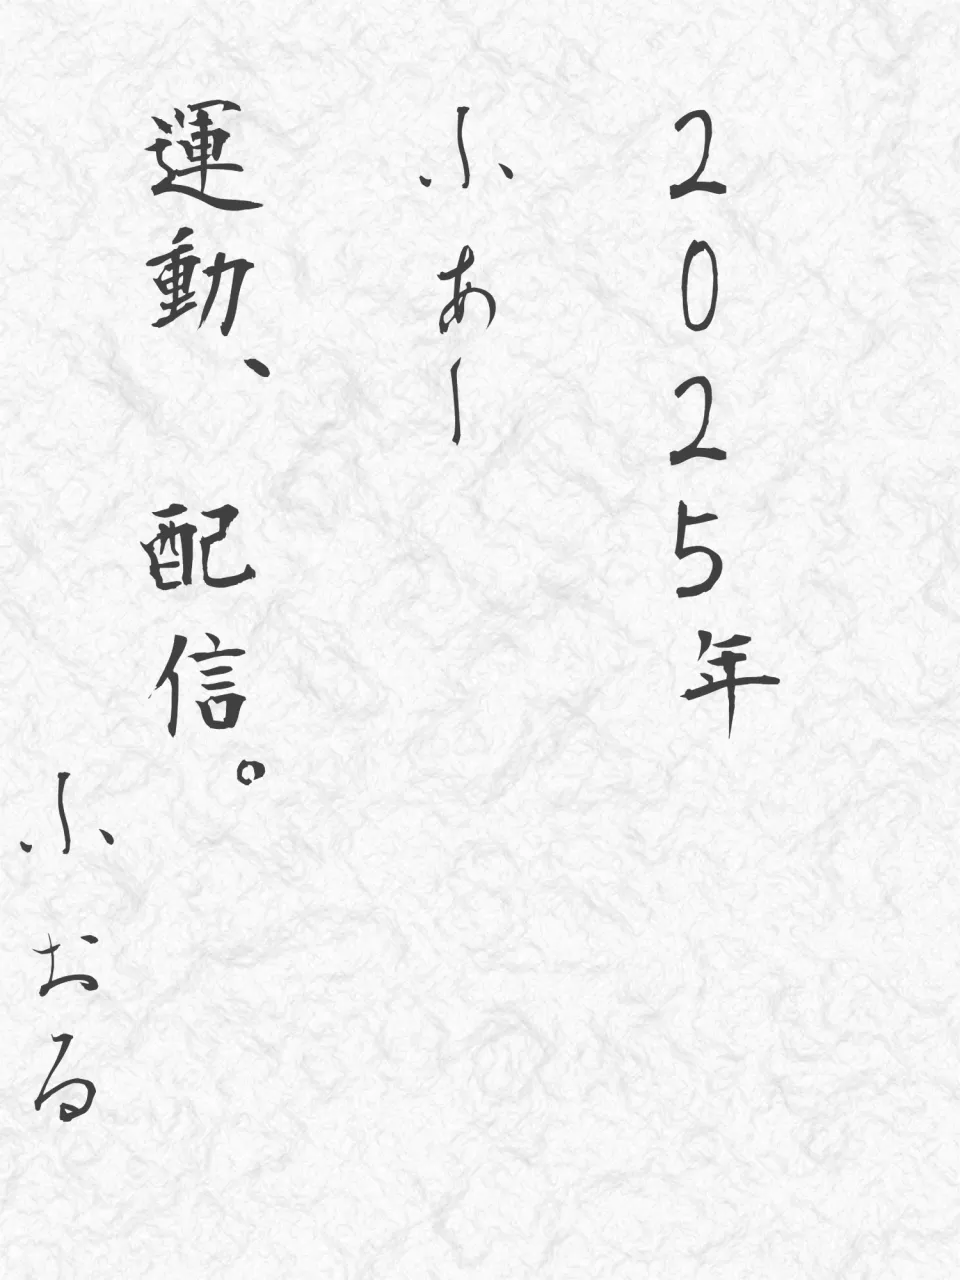 2025年
ふぁー
運動、配信。
ふぉる